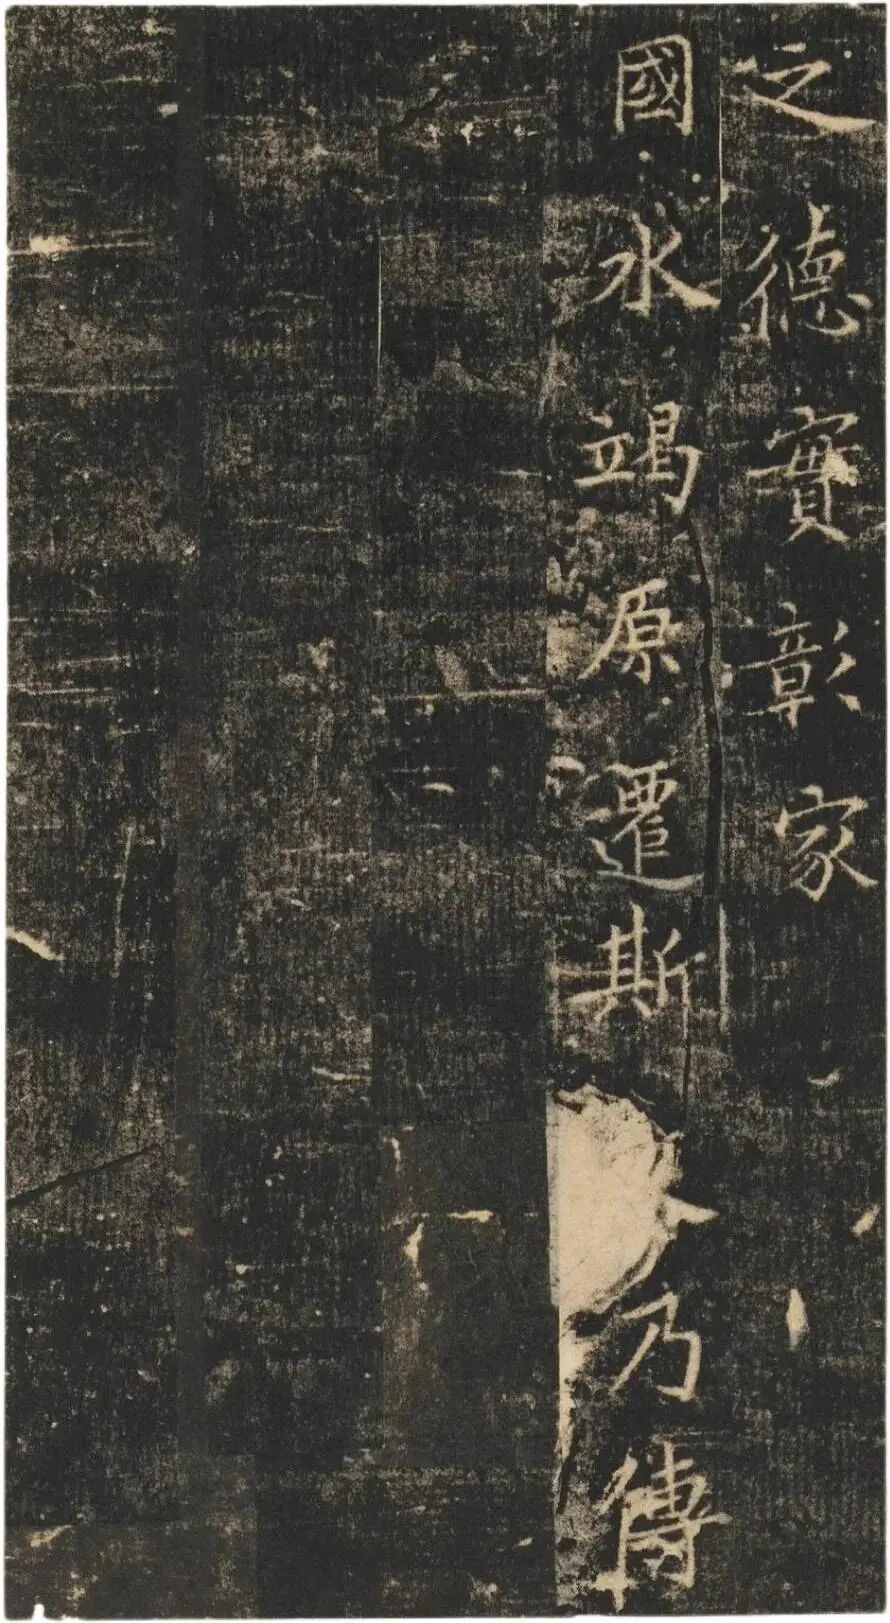 之德實彰家
國水竭原遷斯乃傳